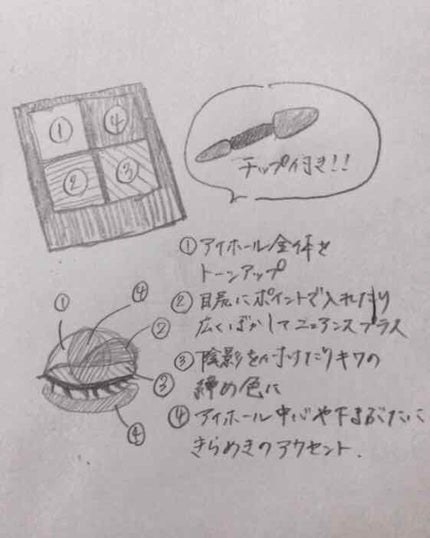 ① ④
② ③
チップ付き!!
①アイホール全体を
トーンアップ
②目尻にポイントで入れたり
広くぼかしてニュアンスプラス
③陰影を付けたりキワの
締め色に
④アイホール中心や下まぶたに
きらめきのアクセント.
① ④
②
③
④